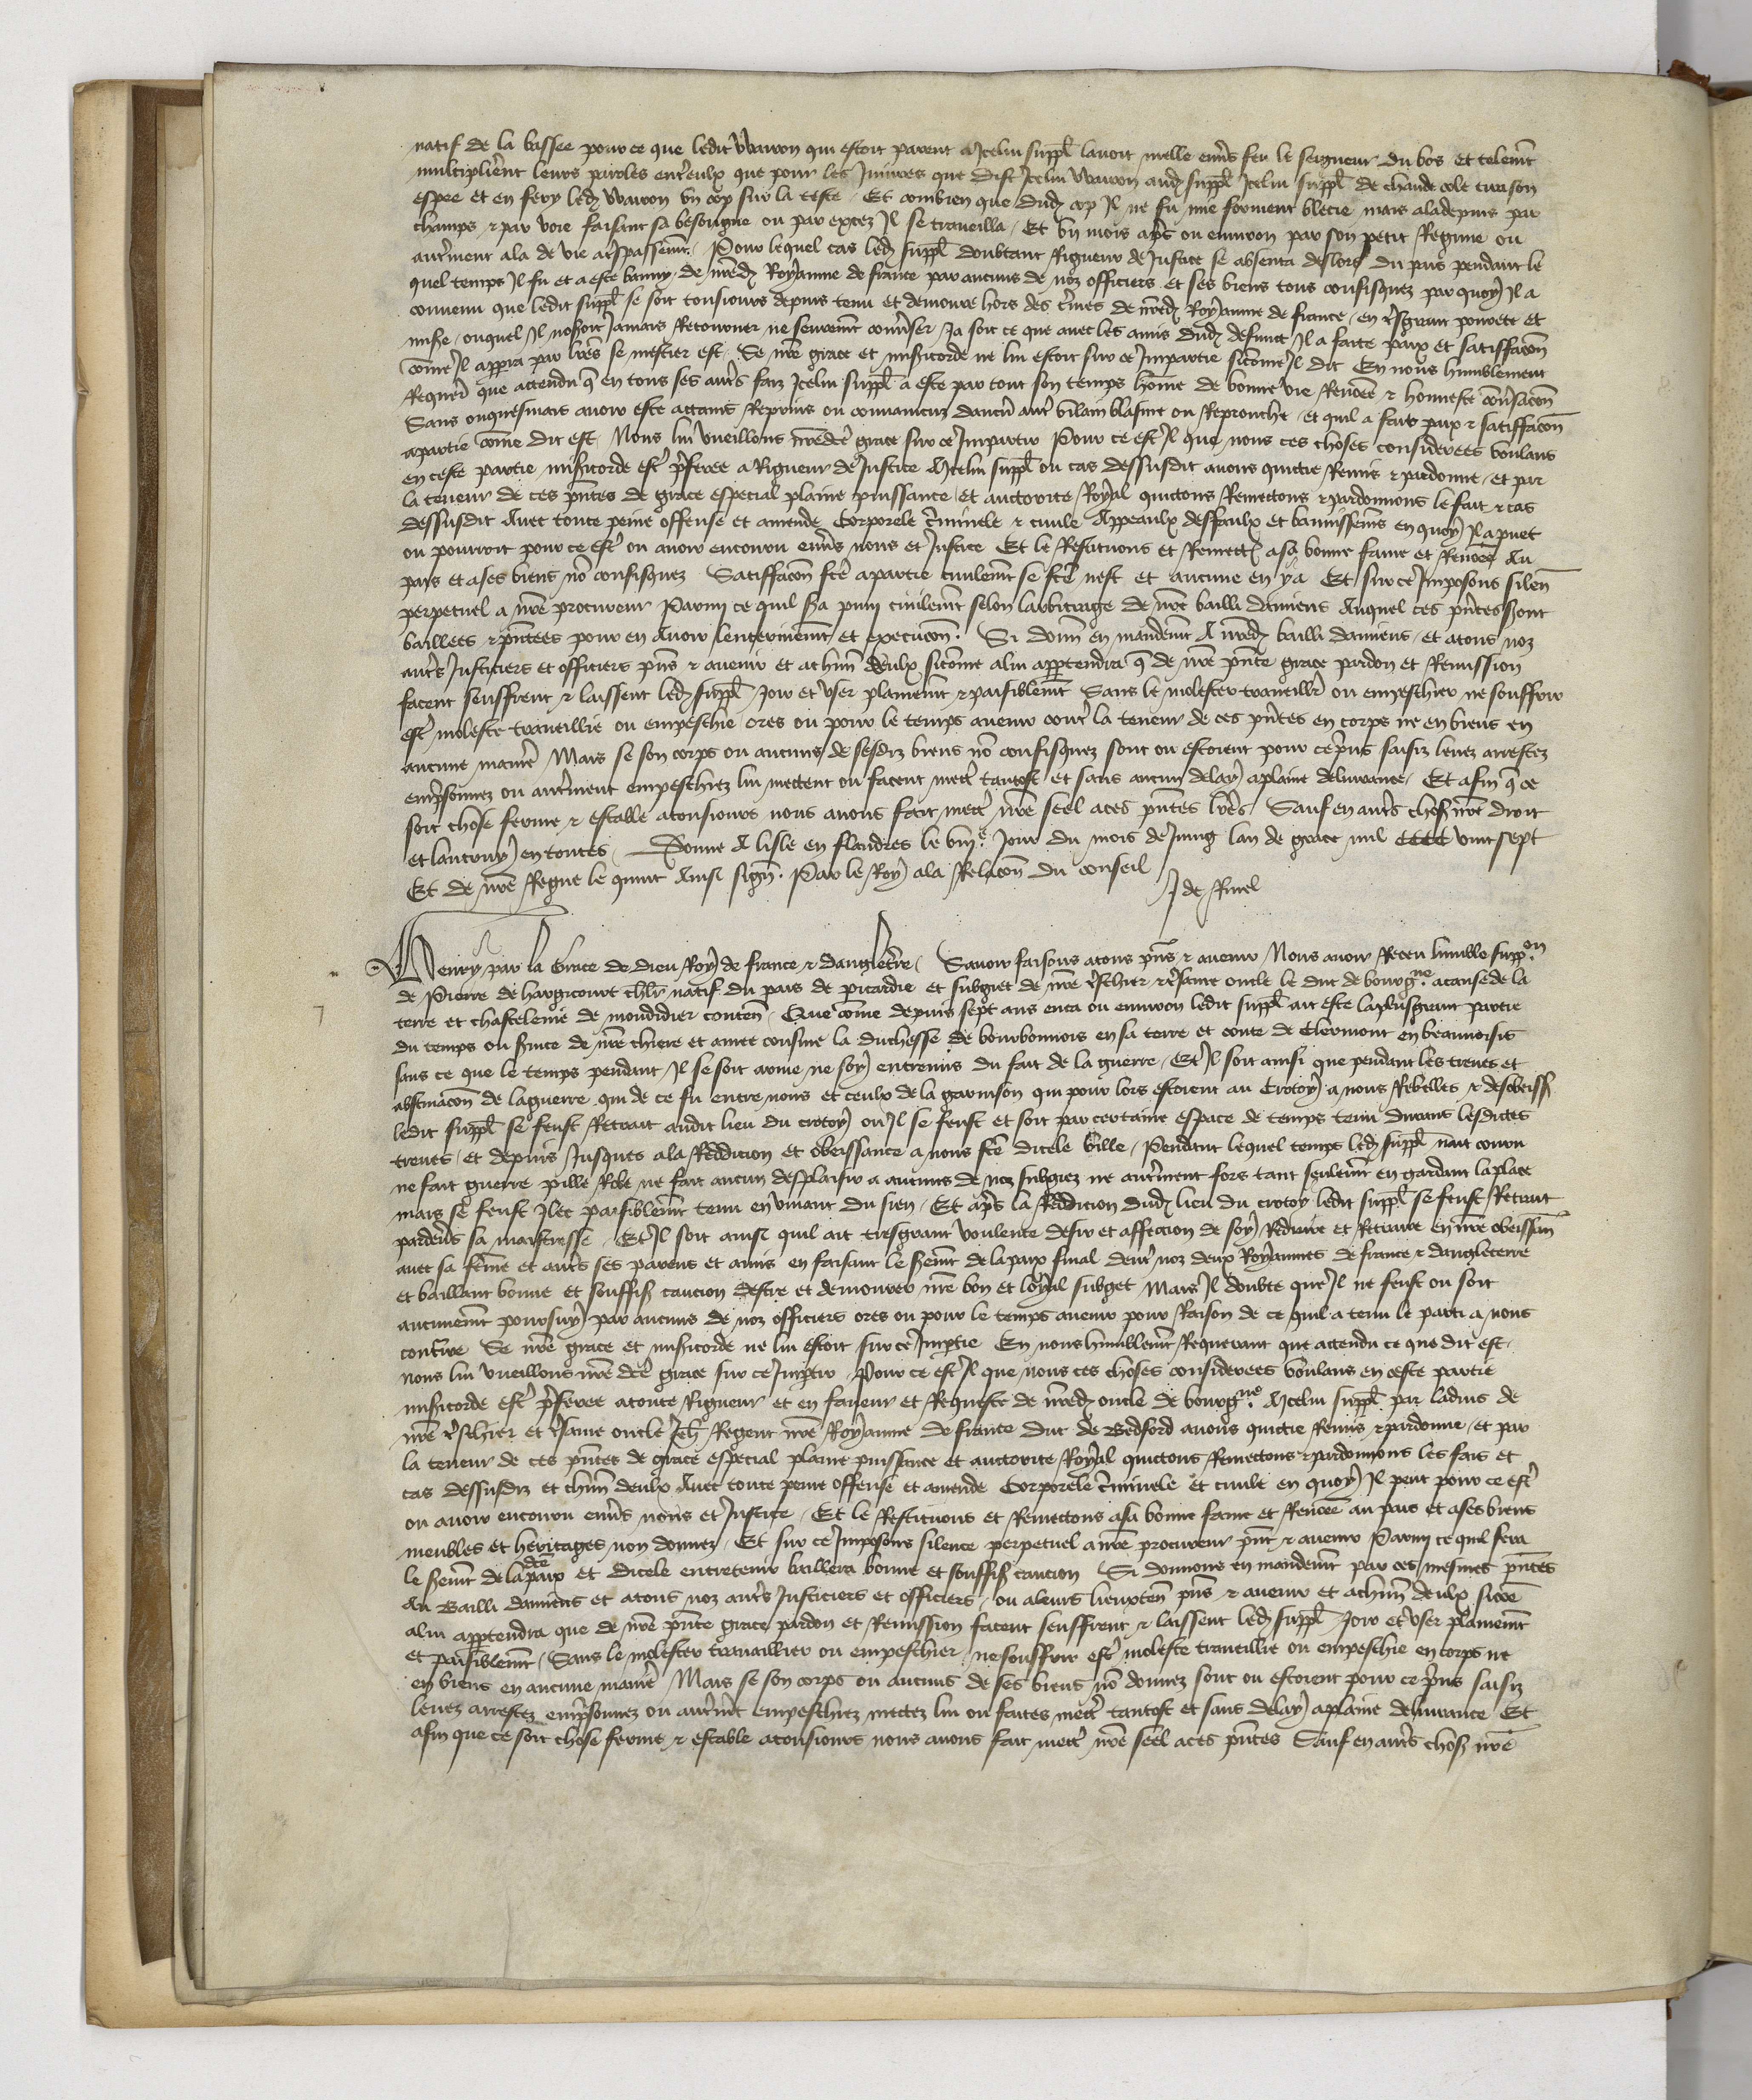 natif de la bassee pour ce que ledit Wauron qui estoit parent dicelui suppl lauoit melle enu's feu le seigneur du bos et telemt
multiplierent leurs paroles entr'eulx que pour les Iniures que dist Icelui Wauron aud suppl Icelui suppl de chaude cole tira son
espee et en fery led Wauron vn cop sur la teste. Et combien que dud cop Il ne fu mie forment blecie mais ala depuis par
champs & par voie faisant sa besongne ou par excez Il se traueilla. Et vn mois apres ou enuiron par son petit Regime ou
autrement ala de vie a trespassemt. Pour lequel cas led suppl doubtant Rigueur de Justice se absenta deslors du pais pendant le
quel temps Il fu et a este banny de nred Royaume de france par aucuns de noz officiers et ses biens tous confisquez par quoy Il a
conuenu que ledit suppl se soit tousiours depuis tenu et demoure hors des t'mes de nred Royaume de france en tsgrant pourete et
mise. ouquel Il noseroit Iamais Retourner ne seurement conuerser. Ja soit ce que auec les amis dud defunct Il a faicte paix et satiffacon
come Il apperra par lres se mestier est. Se nre grace et misicorde ne lui estoit sur ce Impartie sicome Il dit En nous humblement
Requer't que attendu q en tous ses autrs faiz Icelui suppl a este par tout son temps home de bonne vie Renomee & honneste conuersacon
Sans onquesmais auoir este attaint Reprins ou conuaincuz daucun autre vilain blasme ou Reprouche. et quil a fait paix & satiffacon
a partie come dit est. Nous lui vueillons nred'ce grace sur ce Impartir Pour ce est Il que nous ces choses considerees voulans
en ceste partie misicorde estre p'feree a Rigueur de Justice A Icelui suppl ou cas dessusdit auons quictie Remis & pardonne. et par
la teneur de ces pntes de grace especial plaine puissance et auctorite Royal quictons Remectons & pardonnons le fait & cas
dessusdit Auec toute peine offense et amende Corporele c'minele & ciuile Appeaulx deffaulx et bannissemens en quoy Il a puet
ou pourroit pour ce estre ou auoir encouru enu's nous et Justice Et le Restituons et Remect' a sa bonne fame et Renomee Au
pais et a ses biens no confisquez Satiffacon fce a partie ciuilemt se fce nest et aucune en y a Et sur ce Imposons silence
perpetuel a nre procureur Parmi ce quil sera puni ciuilemt selon larbitrage de nre bailli damiens Auquel ces pntes sont
baillees & pntees pour en Auoir lenterinemt et execucon. Si donn' en mandemt A nred bailli damiens. et a tous noz
autrs Justiciers et officiers pns & auenir et a chun deulx sicome a lui appartendra q de nre pnte grace pardon et Remission
facent seuffrent & laissent led suppl Joir et vser plainemt & paisiblemt Sans le molester traueillier ou empeschier ne souffrir
estre moleste traueillie ou empeschie ores ou pour le temps auenir contre la teneur de ces pntes en corps ne en biens en
aucune maniere Mais se son corps ou aucuns de sesdiz biens no confisquez sont ou estoient pour ce prins saisiz leuez arrestez
emprisonnez ou autrement empeschiez lui mectent ou facent mectre tantost et sans aucun delay a plaine deliurance. Et afin q ce
soit chose ferme & estable a tousiours nous auons fait mectre nre seel a ces pntes lres. Sauf en autrs choses nre droit
et lautruy en toutes. Donne A lisle en flandres le viije Jour du mois de Juing lan de grace mil cccc vint sept
Et de nre Regne le quint Ainsi sign. Par le Roy a la Relacon du conseil
J de Rinel
Henry par la Grace de Dieu Roy de france & dangleterre. Sauoir faisons a tous pns & auenir Nous auoir Receu humble suppon
7
de Pierre de hargicourt chlr natif du pais de picardie et subgiet de nre tschier & tsame oncle le duc de bourgne. a cause de la
terre et chastelenie de mondidier conten. Que come depuis sept ans enca ou enuiron ledit suppl ait este la plusgrant partie
du temps ou seruice de nre chiere et amee cousine la duchesse de bourbonnois en sa terre et conte de Clermont en beauuoisis
sans ce que le temps pendant Il se soit arme ne soy entremis du fait de la guerre. Et Il soit ainsi que pendant les treues et
abstinacon de laguerre qui de ce fu entre nous et ceulx de la garnison qui pour lors estoient au Crotoy a nous Rebelles & desobeiss
ledit suppl se feust Retrait audit lieu du crotoy ou Il se feust et soit par certaine espace de temps tenu durans lesdictes
treues. et depuis Jusques a la Reddicion et obeissance a nous fce dicele ville. Pendant lequel temps led suppl nait couru
ne fait guerre pille Robe ne fait aucun desplaisir a aucuns de noz subgiez ne autrement fors tant seulemt en gardant la place
mais se feust Ilec paisiblemt tenu en viuant du sien. Et apres la Reddicion dud lieu du crotoy ledit suppl se feust Retrait
pardeuers sa maistresse. Et Il soit ainsi quil ait tresgrant voulente desir et affection de soy Reduire et Retraire en nre obeissan
auec sa feme et autrs ses parens et amis en faisant le Seremt de la paix final dentre noz deux Royaumes de france & dangleterre
et baillant bonne et souffis caucion destre et demourer nre bon et loyal subget Mais Il doubte que Il ne feust ou soit
aucunemt poursuy par aucuns de noz officiers ores ou pour le temps auenir pour Raison de ce quil a tenu le parti a nous
contraire Se nre grace et misicorde ne lui estoit sur ce Impartie En nous humblemt Requerant que attendu ce que dit est.
nous lui vueillons nre dce grace sur ce Impartir. Pour ce est Il que nous ces choses considerees voulans en ceste partie
misicorde estre p'feree a toute Rigueur et en faueur et Requeste de nred oncle de bourgne. A Icelui suppl par laduis de
nre tschier et tsame oncle Jeh Regent nre Royaume de france Duc de Bedford auons quictie Remis & pardonne. et par
la teneur de ces pntes de grace especial plaine puissance et auctorite Royal quictons Remectons & pardonnons les fais et
cas dessusdiz et chun deulx Auec toute peine offense et amende Corporele c'minele et ciuile en quoy Il peut pour ce estre
ou auoir encouru enu's nous et Justice. Et le Restituons et Remectons a sa bonne fame et Renomee au pais et a ses biens
meubles et heritages non donnez. Et sur ce Imposons silence perpetuel a nre procureur pnt & auenir Parmi ce quil fera
le Seremt de lad'ce paix et dicele entretenir baillera bonne et souffis caucion Si donnons en mandemt par ces mesmes pntes
Au Bailli damiens et a tous noz autrs Justiciers et officiers. ou a leurs lieuxten pns & auenir et a chun deulx sicome
a lui appartendra que de nre pnte grace pardon et Remission facent seuffrent & laissent led suppl Joir et vser plainemt
et paisiblemt. Sans le molester trauaillier ou empeschier. ne souffrir estre moleste traueillie ou empeschie en corps ne
en biens en aucune maniere Mais se son corps ou aucuns de ses biens no donnez sont ou estoient pour ce prins saisiz
leuez arrestez emprisonnez ou autremt empeschiez mectez lui ou faites mectre tantost et sans delay a plaine deliurance Et
afin que ce soit chose ferme & estable a tousiours nous auons fait mectre nre seel a ces pntes Sauf en autrs choses nre